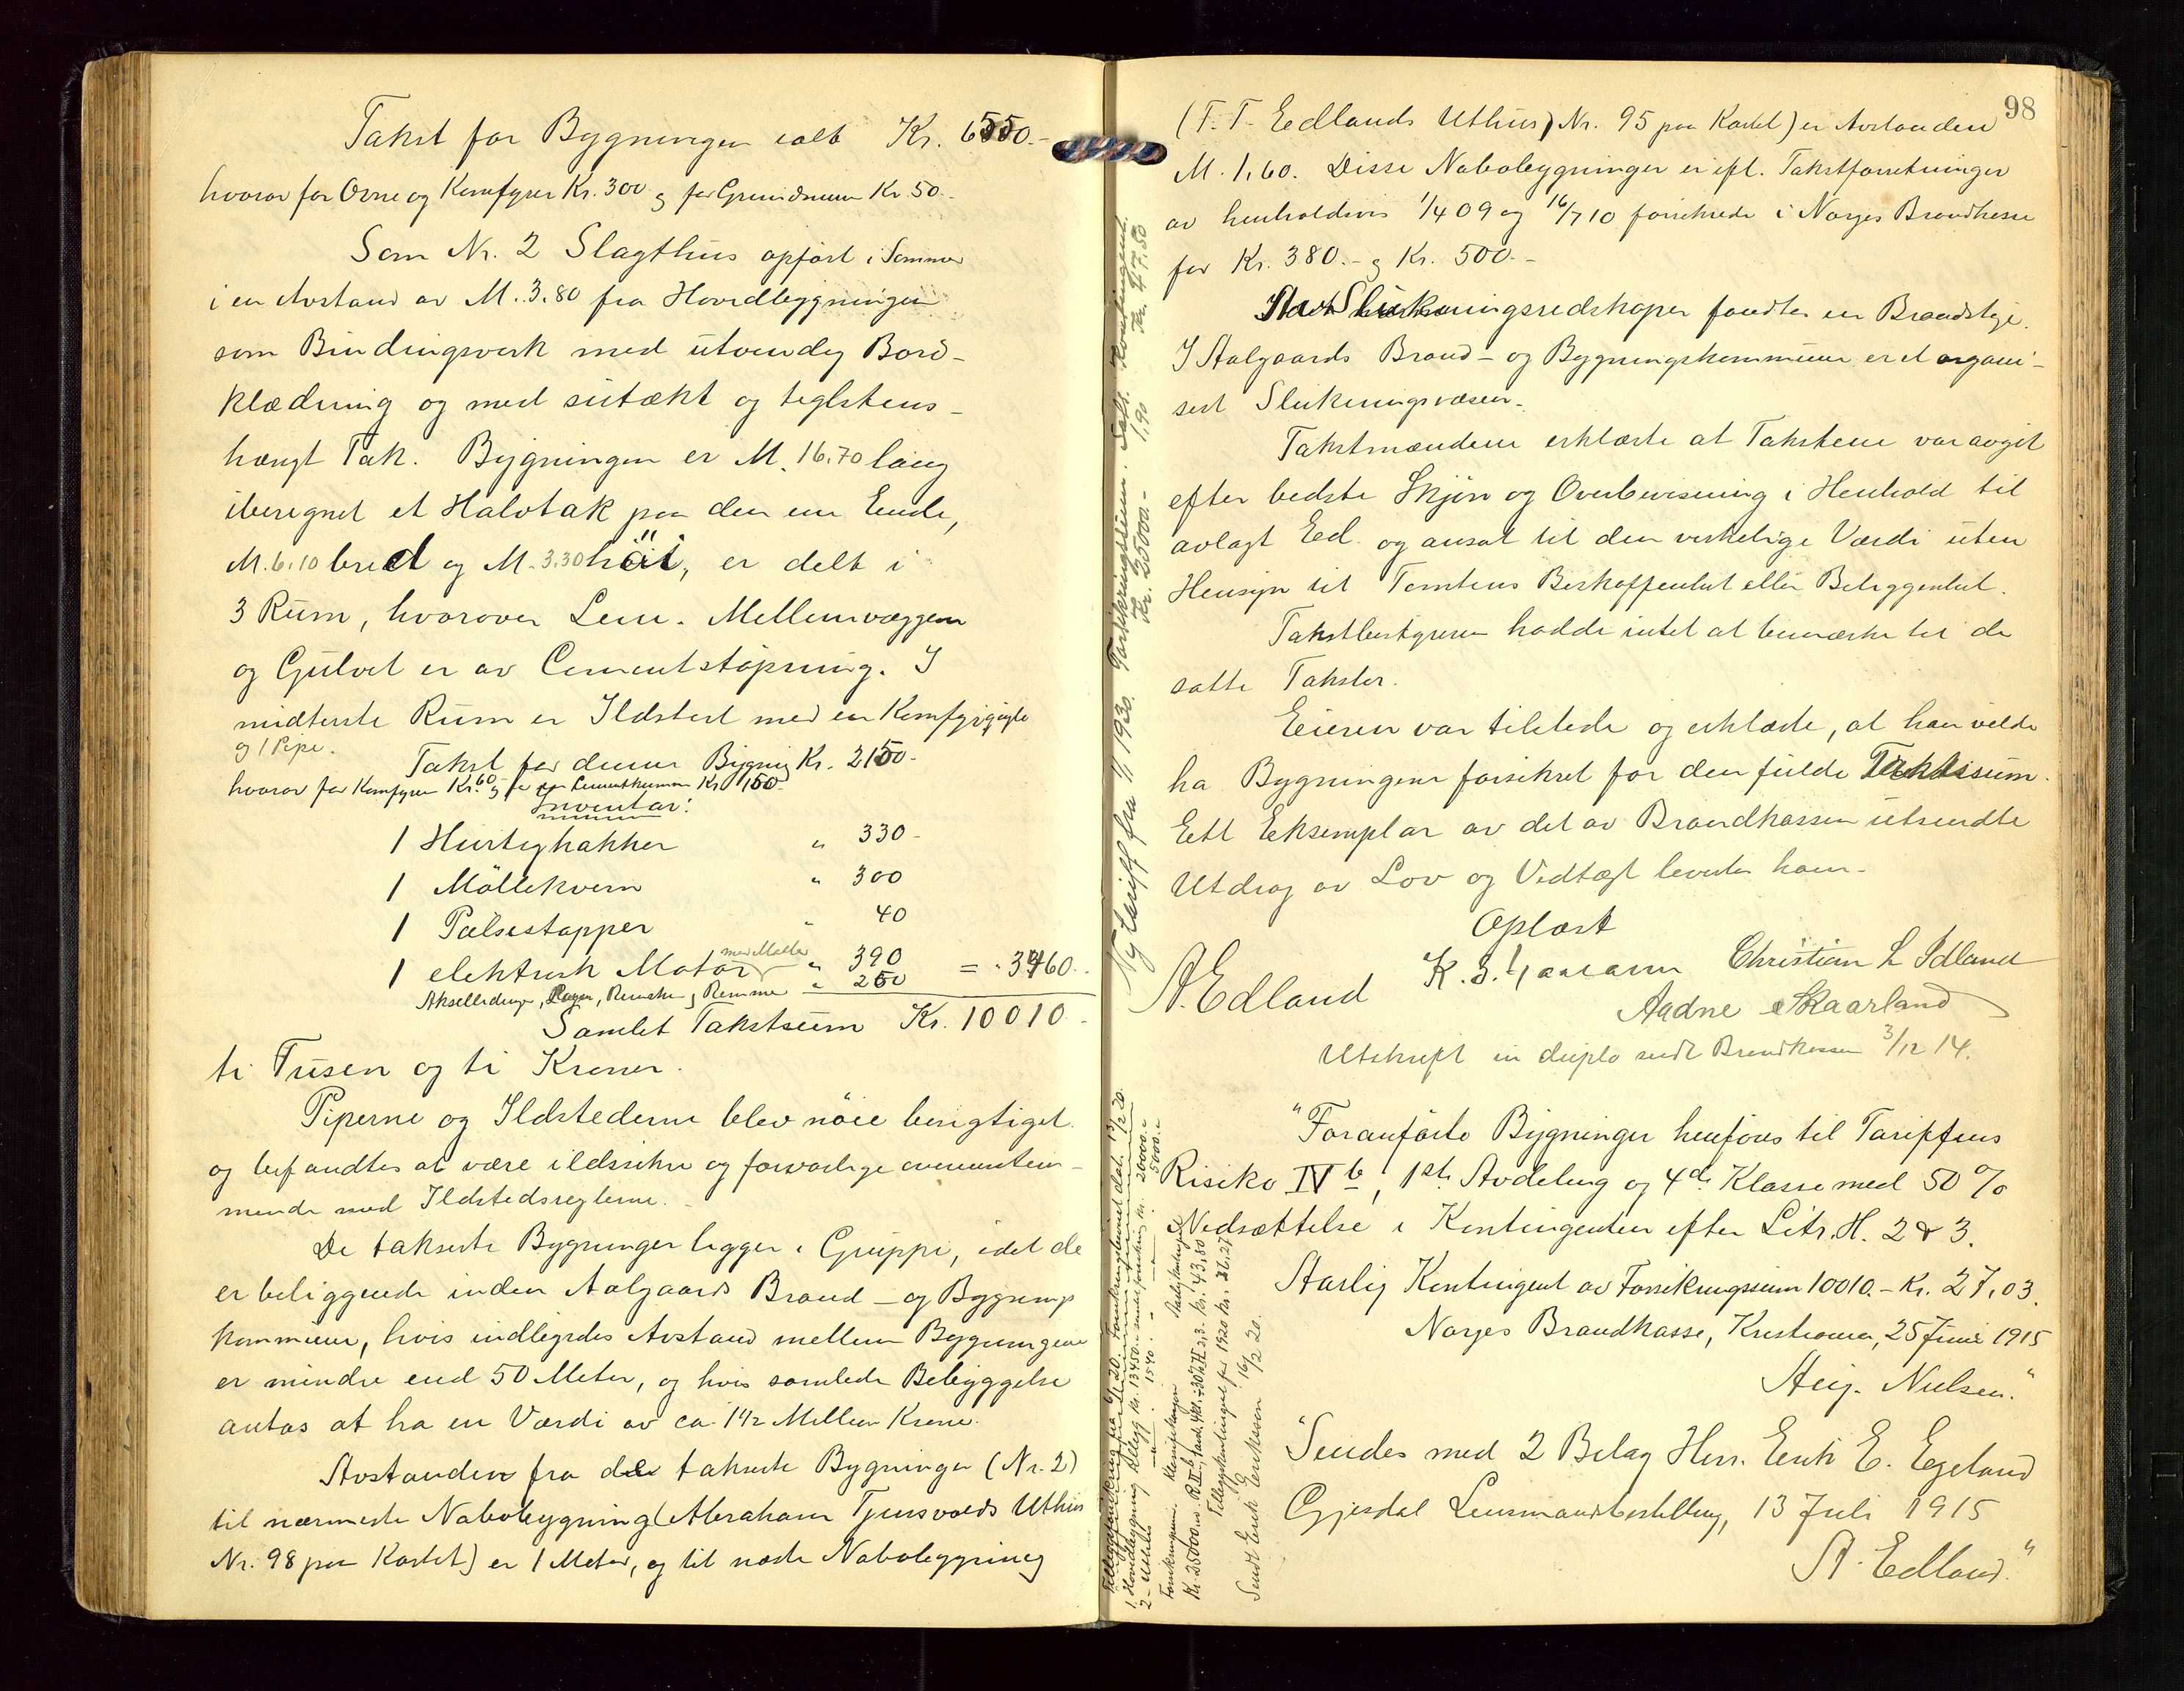 Takst for Bygningen ialt Kr. 6550.-
hvorav for Ovne og Komfyrer Kr. 300 og for Grundmur Kr. 50.-
Som Nr. 2 Slagthus opført i Sommer
i en Avstand av M. 3.80 fra Hovedbygningen
som Bindingsverk med utvendig Bord-
klædning og med sutækt og teglstens-
hængt Tak. Bygningen er M. 16.70 lang
iberegnet et Halvtak paa den ene Ende,
M. 6.10 bred og M. 3.30 høi, er delt i
3 Rum, hvorover Lem. Mellemvæggene
og Gulvet er av Cementstøpning. I
midterste Rum er Ildsted med en Komfyrgryte
og 1 Pipe.
Takst for denne Bygning Kr. 2150.-
hvorav for Komfyren Kr. 60.- og for Kr. 150.-
Inventar:
1 Hurtighakker " 330-
1 Møllekvern " 300
1 Pølsestopper " 40
1 elektrisk Motor med Maaler " 390
Akselledninge, Lager, Remskr. og Remmer " 250 = " 3460.-
Samlet Takstsum Kr. 10010.-
ti Tusen og ti Kroner.
Piperne og Ildstederne blev nøie besigtiget
og befandtes at være ildssikre og forsvarlige overensstem-
mende med Ildstedsreglerne.
De takserte Bygninger ligger i Gruppe, idet de
er beliggende inden Aalgaards Brand- og Bygnings
kommune, hvis indbyrdes Avstand mellem Bygningene
er mindre end 50 Meter, og hvis samlede Bebyggelse
antas at ha en Værdi av ca. 1½ Million Kroner.
Avstanden fra de takserte Bygninger (Nr. 2)
til nærmeste Nabobygning (Abraham Tjensvolds Uthus
Nr. 98 paa Kartet) er 1 Meter, og til næste Nabobygning
98
(T. T. Edlands Uthus) Nr. 95 paa Kartet) er Avstanden
M. 1,60. Disse Nabobygninger er ifl. Takstforretninger
av henholdsvis 1/4 09 og 16/7 10 forsikrede i Norges Brandkasse
for Kr. 380.- og Kr. 500.-
Av Slukningsredskaper fandtes en Brandstige.
I Aalgaards Brand- og Bygningskommune er et organi-
sert Slukningsvæsen.
Takstmændene erklærte at Takstene var avgit
efter bedste Skjøn og Overbevisning i Henhold til
avlagt Eed og ansat til den virkelige Værdi uten
Hensyn til Tomtens Beskaffenhet eller Beliggenhet.
Takstbestyreren hadde intet at bemærke til de
satte Takster.
Eieren var tilstede og erklærte, at han vilde
ha Bygningene forsikret for den fulde Takstsum.
Ett Eksemplar av det av Brandkassen utsendte
Utdrag av Lov og Vedtægt levertes ham.
Oplæst
A. Edland Christian L Idland
Aadne Skaarland
Utskrift in duplo sendt Brandkassen 3/12 14.
"Foranførte Bygninger henføres til Tariffens
Risiko IV b, 1ste Avdeling og 4de Klasse med 50 %
Nedsættelse i Kontingenten efter Litr. H. 2 & 3.
Aarlig Kontingent av Forsikringssum 10010.- Kr. 27,03.
Norges Brandkasse, Kristiania, 25 Juni 1915
Aug. Nielsen."
"Sendes med 2 Bilag Herr. Erik E. Egeland
Gjesdal Lensmandsbestilling, 13 Juli 1915
A. Edland."
Ny tariff fra 1/1 1930. Forsikringssum. Sats. Kontingent.
Kr. 25000.- 1,90 Kr. 47,50
1, Hovedbygning tillegg kr. 13450.- samlet forsikring kr. 20000.-
2 - Uthus " 1540.- 5000.-
Tillægskontingent for 1920 kr. 21,27
Sendt Erik Eriksen 16/2 20.